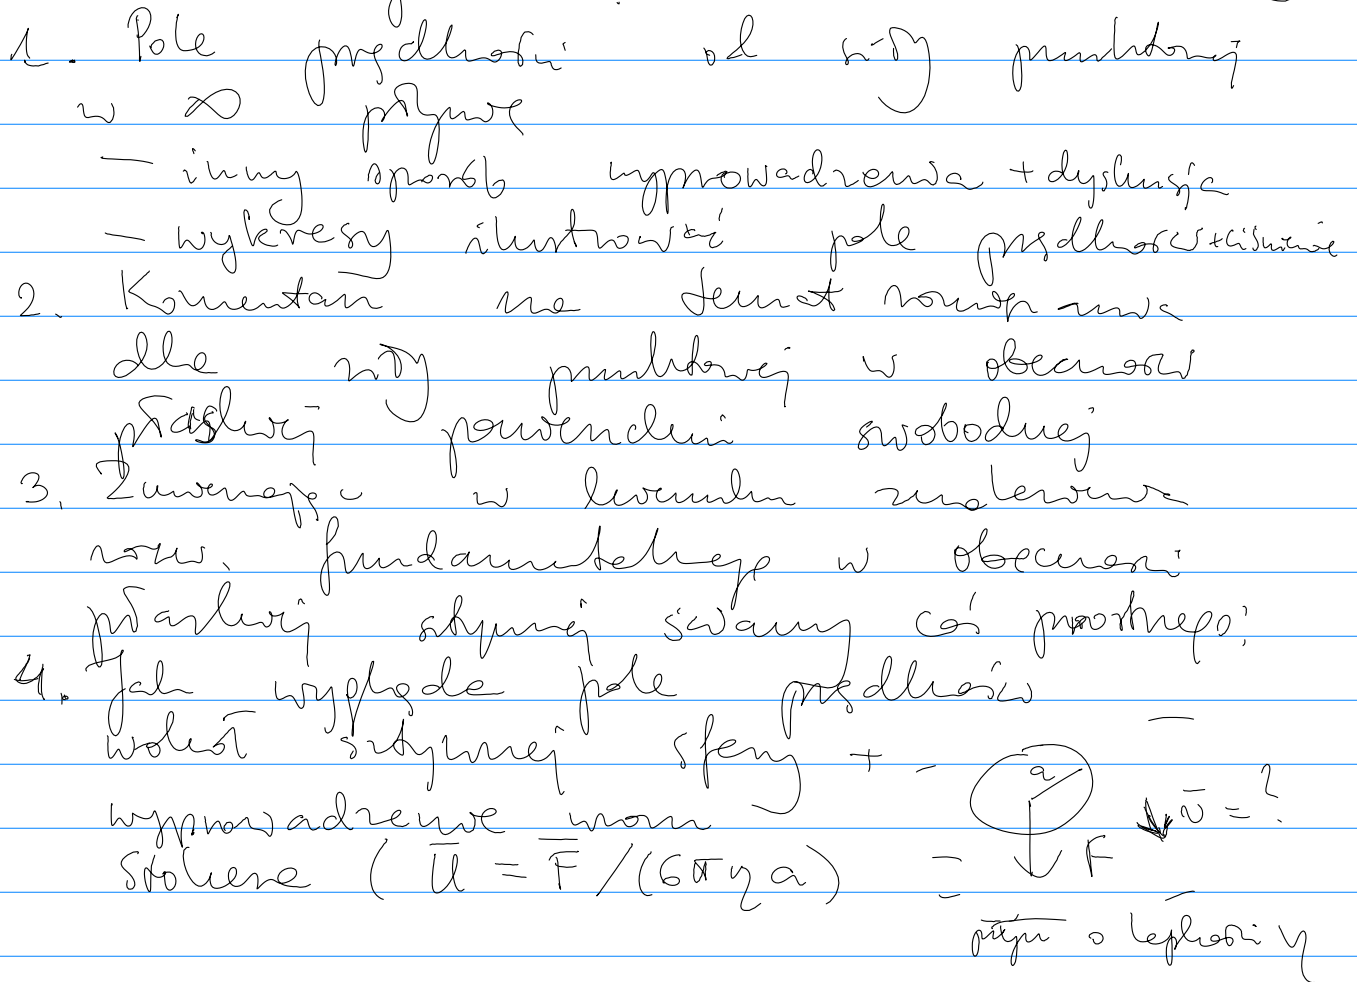 1. Pole prędkości od siły punktowej
w ∞ płynie
- inny sposób wyprowadzenia + dyskusja
- wykresy ilustrować pole prędkości + ciśnienie
2. Komentarz na temat rozwiązania
dla siły punktowej w obecności
płaskiej powierzchni swobodnej
3. Zmierzając w kierunku znalezienia
rozw. fundamentalnego w obecności
płaskiej sztywnej ściany coś prostrzego:
4. Jak wygląda pole prędkości
wokół sztywnej sfery +
wyprowadzenie wzoru
Stokesa ( U̅ = F̅ / (6πηa)
a
v̅ = ?
F
płyn o lepkości η